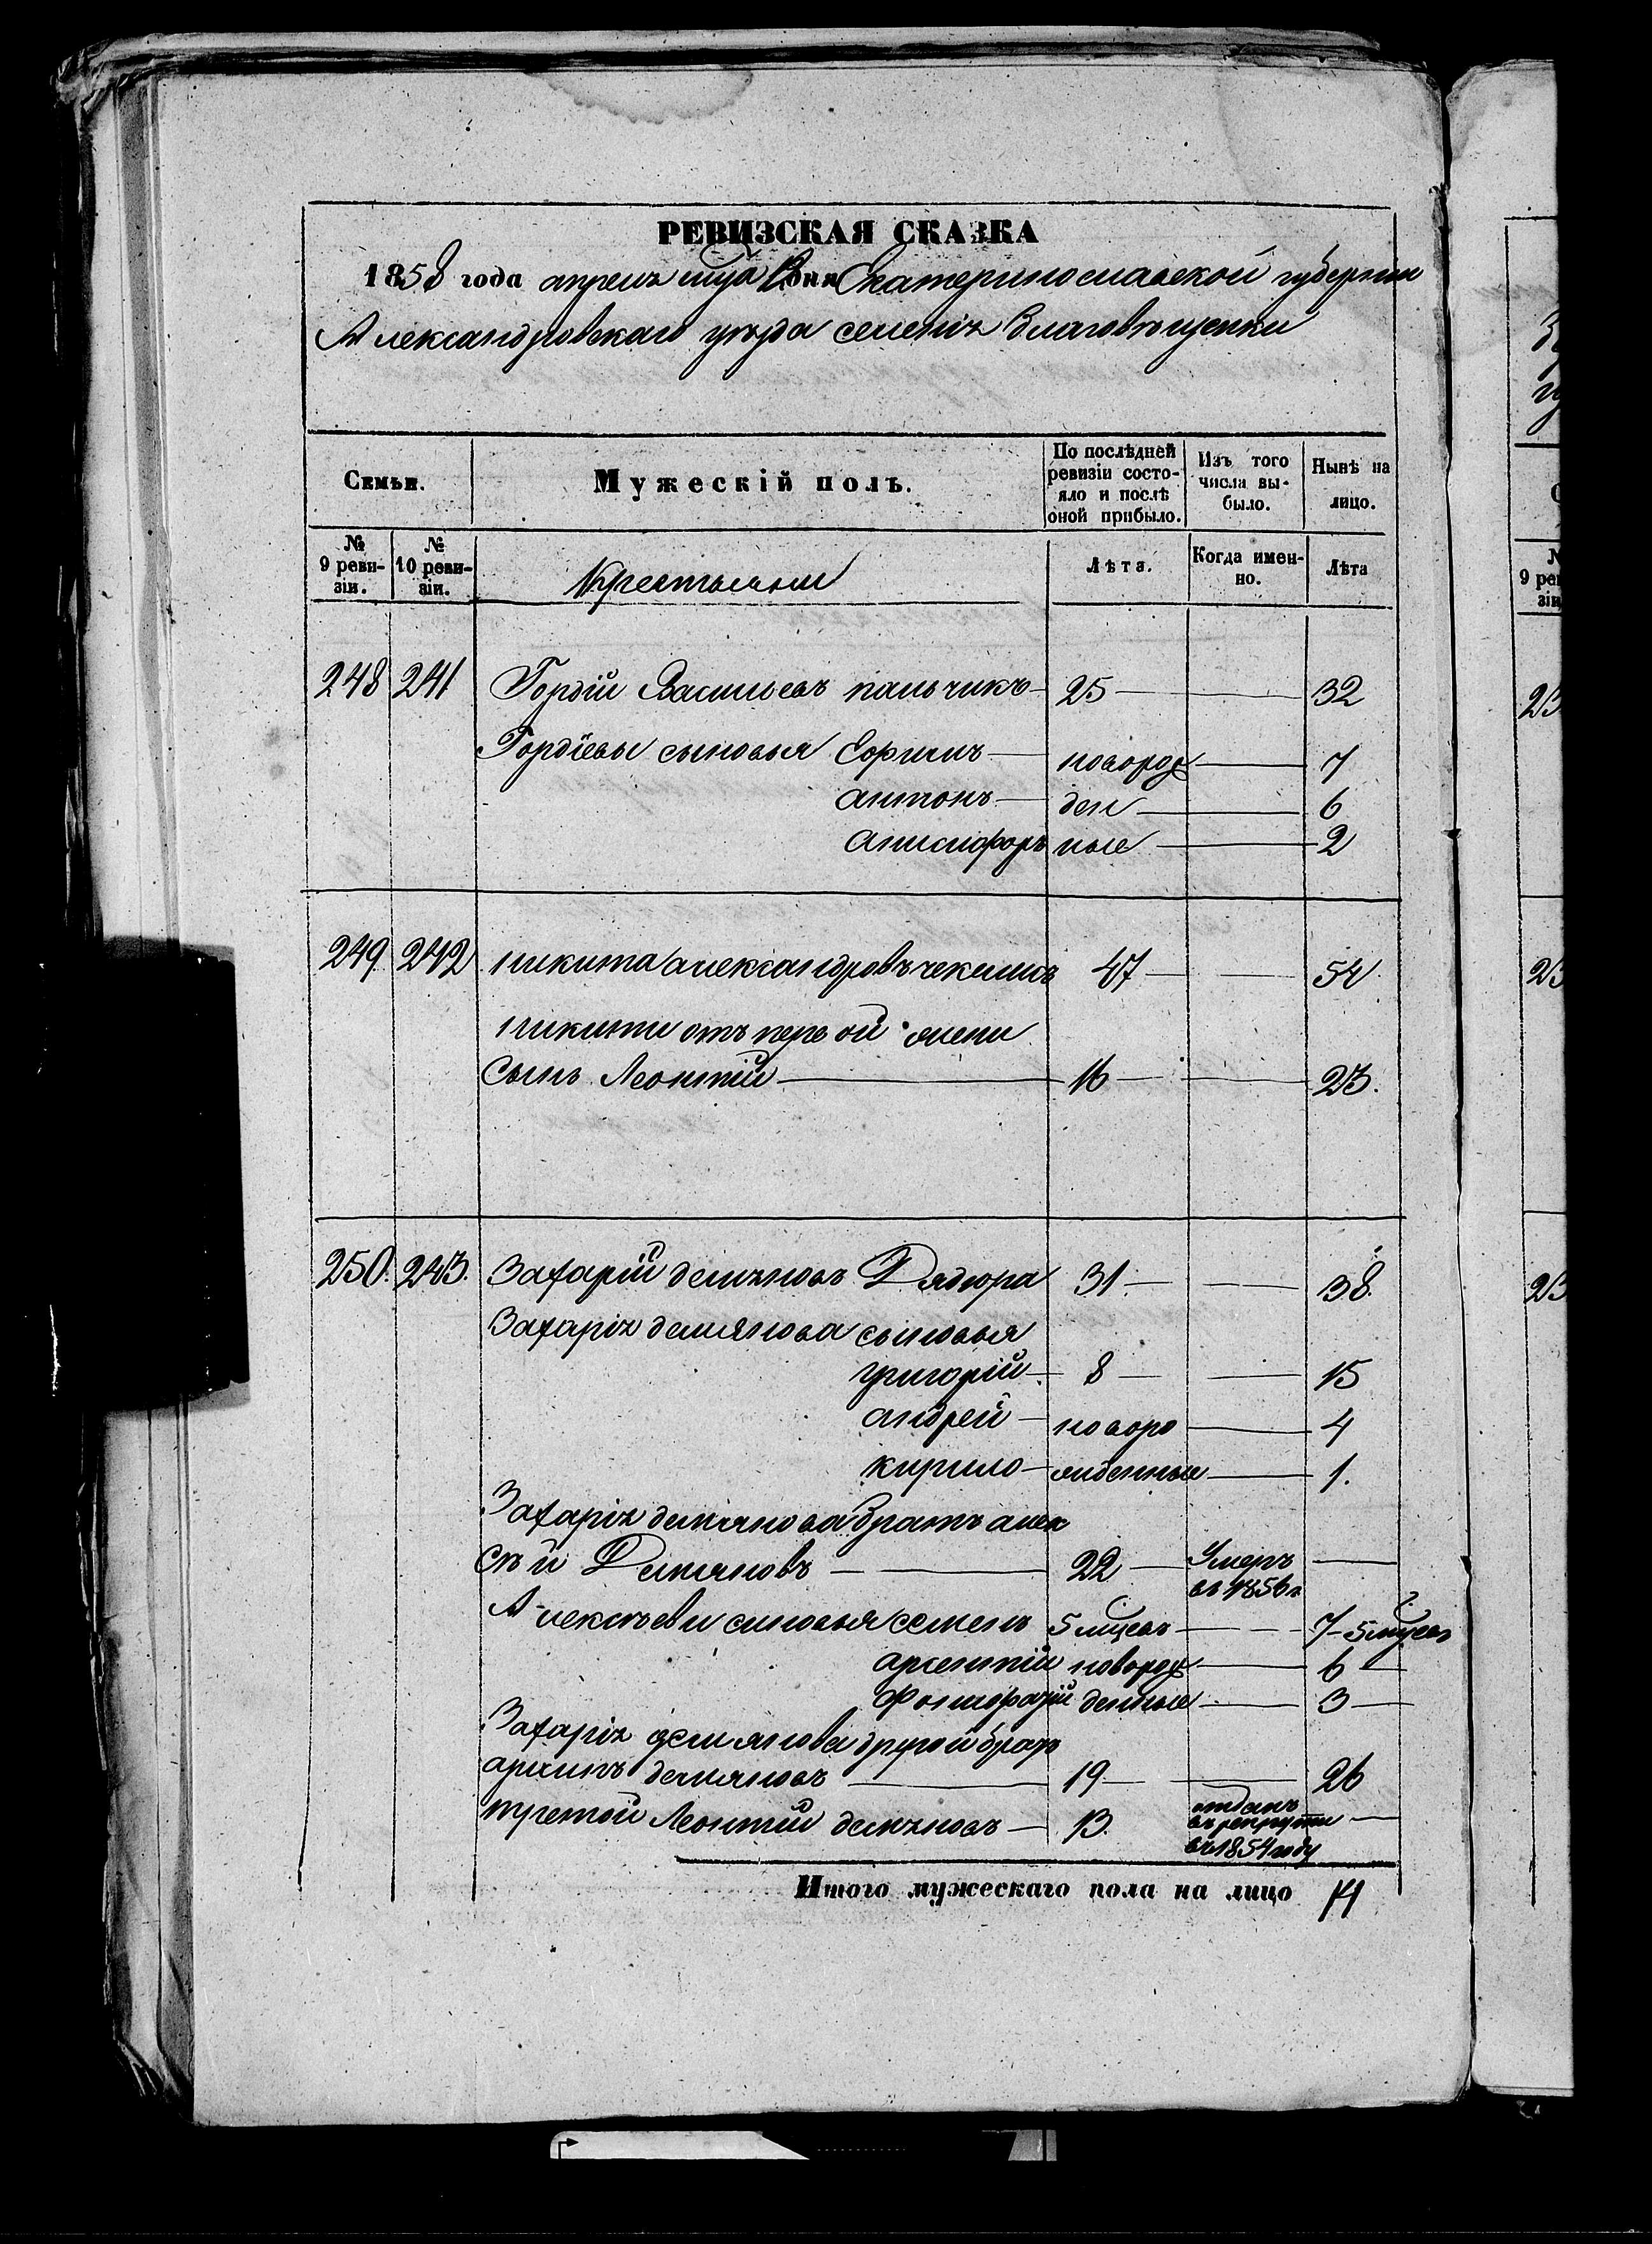 РЕВИЗСКАЯ СКАЗКА
1858 года апреля мца дня Екатеринославской губернии
Александровскаго уѣзда селенія Благовѣщенки
Семьи.
Мужескій полъ.
По послѣдней ревизіи состояло и послѣ оной прибыло.
Изъ того числа выбыло.
Нынѣ на лицо.
№ 9 ревизіи.
№ 10 ревизіи.
Крестьяни
Лѣта.
Когда именно.
Лѣта
248 241 Гордій Васильевъ пальчикъ 25 32
Гордіевы сыновья Ефримъ новорож 7
антонъ ден 6
анисифоръ ные 2
249 242 никита александровъ чекminъ 47 54
никиты отъ первой жены
сынъ Леонтій 16 23.
250. 243. Захарій демяновъ Дядюра 31. 38.
Захарія демянова сыновья
григорій 8 15
андрей новоро 4
кирило жденные 1.
Захарія демянова братъ алек
сѣй Демяновъ 22 Умеръ въ 1856 г
Алексѣеви синовья семенъ 5 мцевъ 7-5 мцевъ
арсентій новорож 6
денные 3
Захарія демянова другой братъ
архипъ демяновъ 19 26
третой Леонтій демяновъ 13. отданъ
въ рекруты
въ 1854 году
Итого мужескаго пола на лицо 14
№
9 рев
зіи